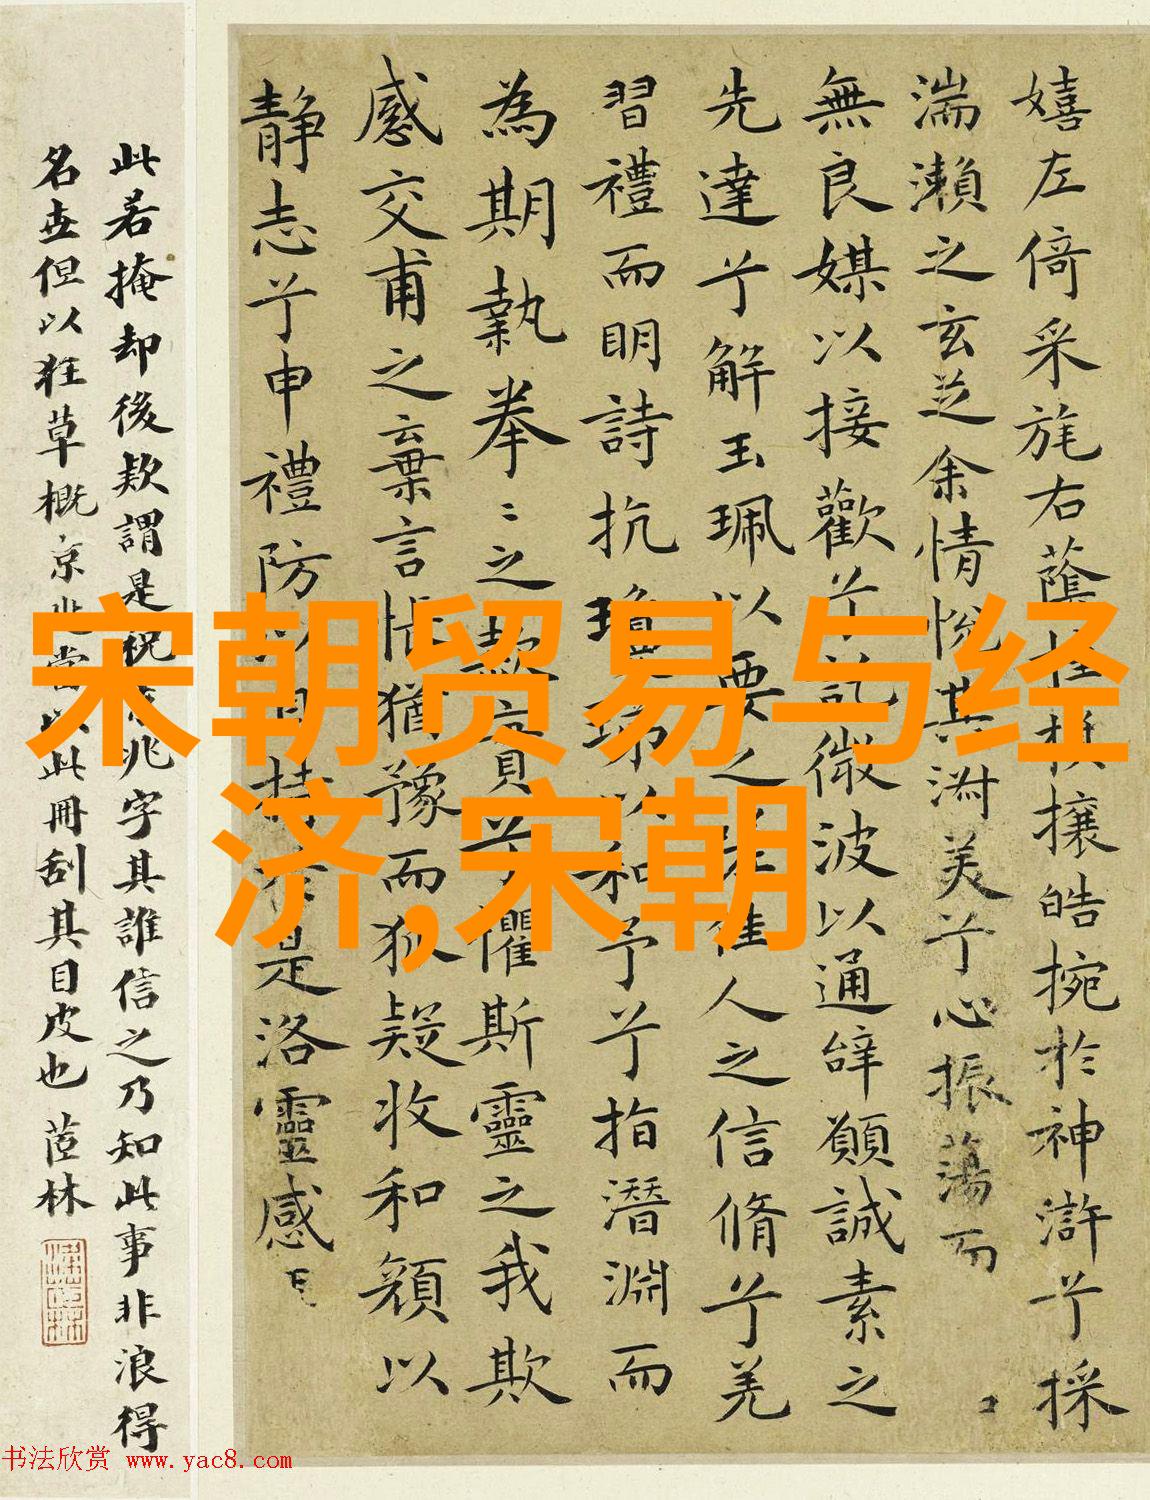 嬉左倚采旄右蔭桂旗攘皓捥於神滸兮採
湍瀨之玄芝余情悅其淑美兮心振蕩而
無良媒以接歡兮託微波以通辭願誠素之
先達兮解玉珮以要之嗟佳人之信脩兮羌
習禮而明詩抗瓊珶以和予兮指潛淵而
為期執拳〻之款實兮懼斯靈之我欺
感交甫之棄言悵猶豫而狐疑收和顏以
靜志兮申禮防以自持於是洛靈感
此若掩却後款謂是祝京兆字其誰信之乃知此事非浪得
名世但以狂草概京兆當以此冊刮其目皮也 茝林
宋朝贸易与经
济,宋朝
书法欣赏 www.yac8.com